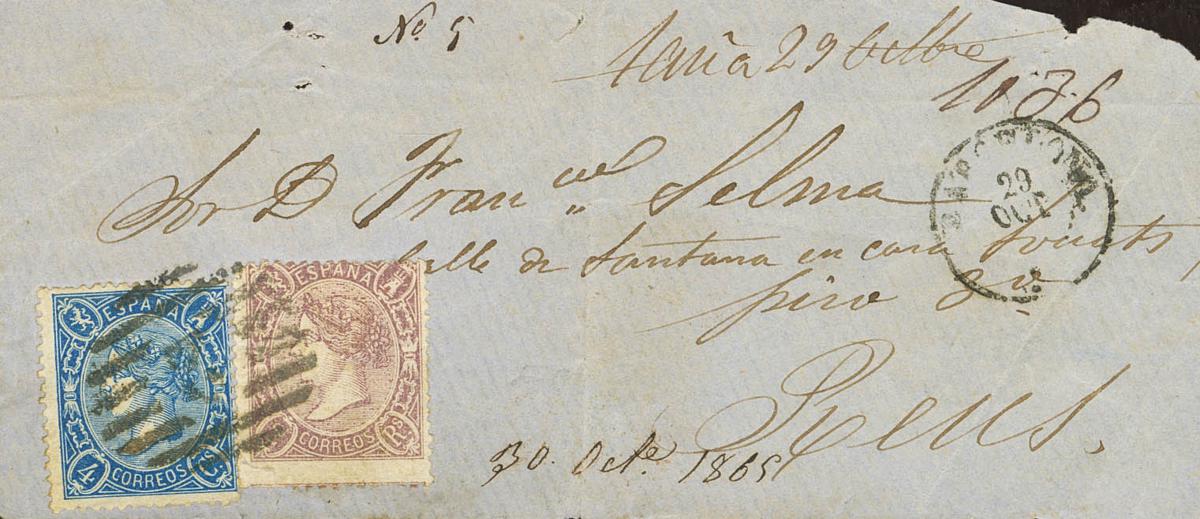 Nº 5
29 Octbre
Sor D Franco Selma
calle de Santana en casa
piso 2º
Reus.
30. Octe. 1865
BARCELONA
29
OCT
ESPAÑA
4 CORREOS Cs
ESPAÑA
CORREOS Rs